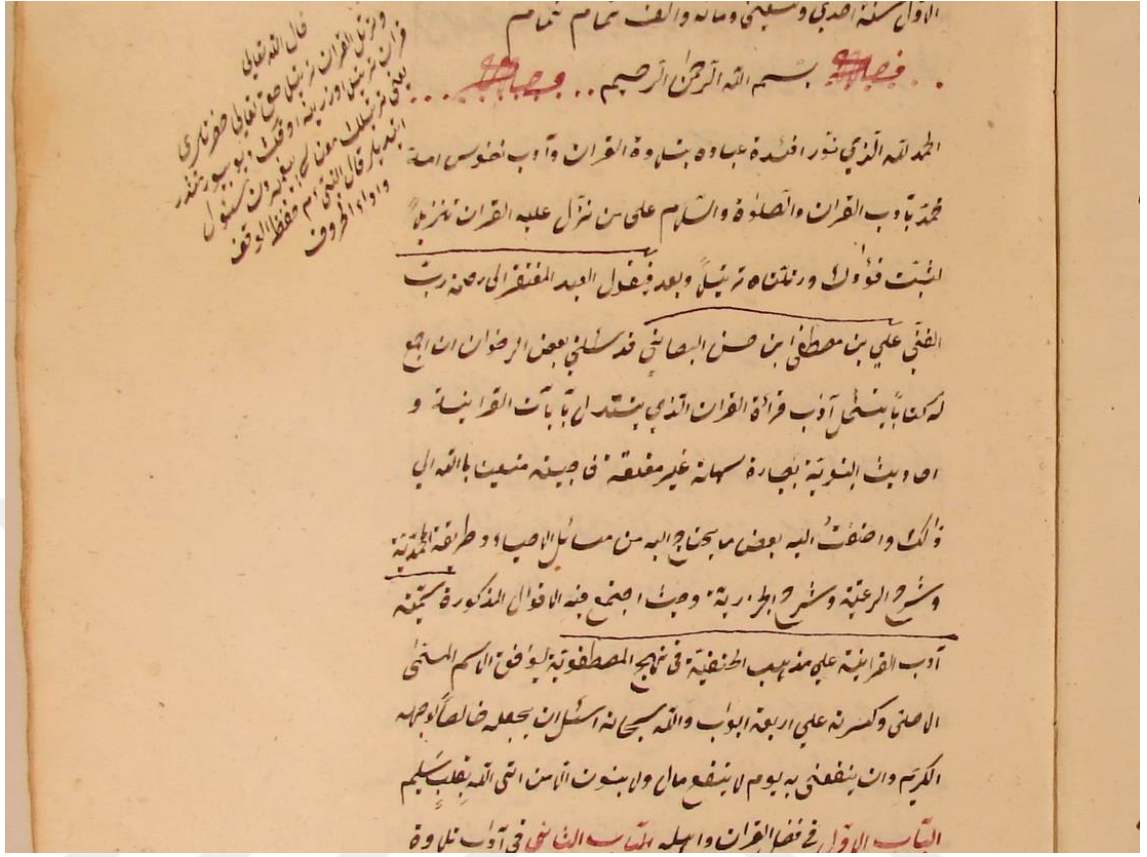 الاول سنة احدي وسبعين ومائة والف تمام تمام
بسم الله الرحمن الرحيم
الحمد لله الذي نور افئدة عباده بتلاوة القران وآدب نفوس امة
محمد بآدب القران والصلوة والسلام على من نزل عليه القران تنزيلاً
لنثبت فؤادك ورتلناه ترتيلاً وبعد فيقول العبد المفتقر الى رحمة ربه
الغني علي بن مصطفى ابن حسن قد سئلني بعض ان اجمع
له كتاباً يشتمل آدب قرائة القران الذي يستدل بآيات القرانية و
احاديث النبوية بعبارة سهلة غير مغلقة
ذالك واضفت اليه بعض ما يحتاج اليه من مسائل الاحياء وطريقة المحمدية
وشرح الرعية وشرح الجزرية وحيث اجتمع فيه الاقوال المذكورة سميته
آدب القرانية علي مذهب الحنفية في نهج المصطفوية ليوافق الاسم المسمى
الاصلى وكسرته علي اربعة ابواب والله سبحانه اسئل ان يجعله خالصاً لوجهه
الكريم وان ينفعني به يوم لا ينفع مال ولا بنون الا من اتى الله بقلب سليم
الباب الاول في فضل القران واهله الباب الثاني في آداب تلاوة
قال الله تعالى
ورتل القران ترتيلا حق تعالى
قران
يعني ترتيلك معناسي
قال النبي عم حفظ الوقف
واداء الحروف